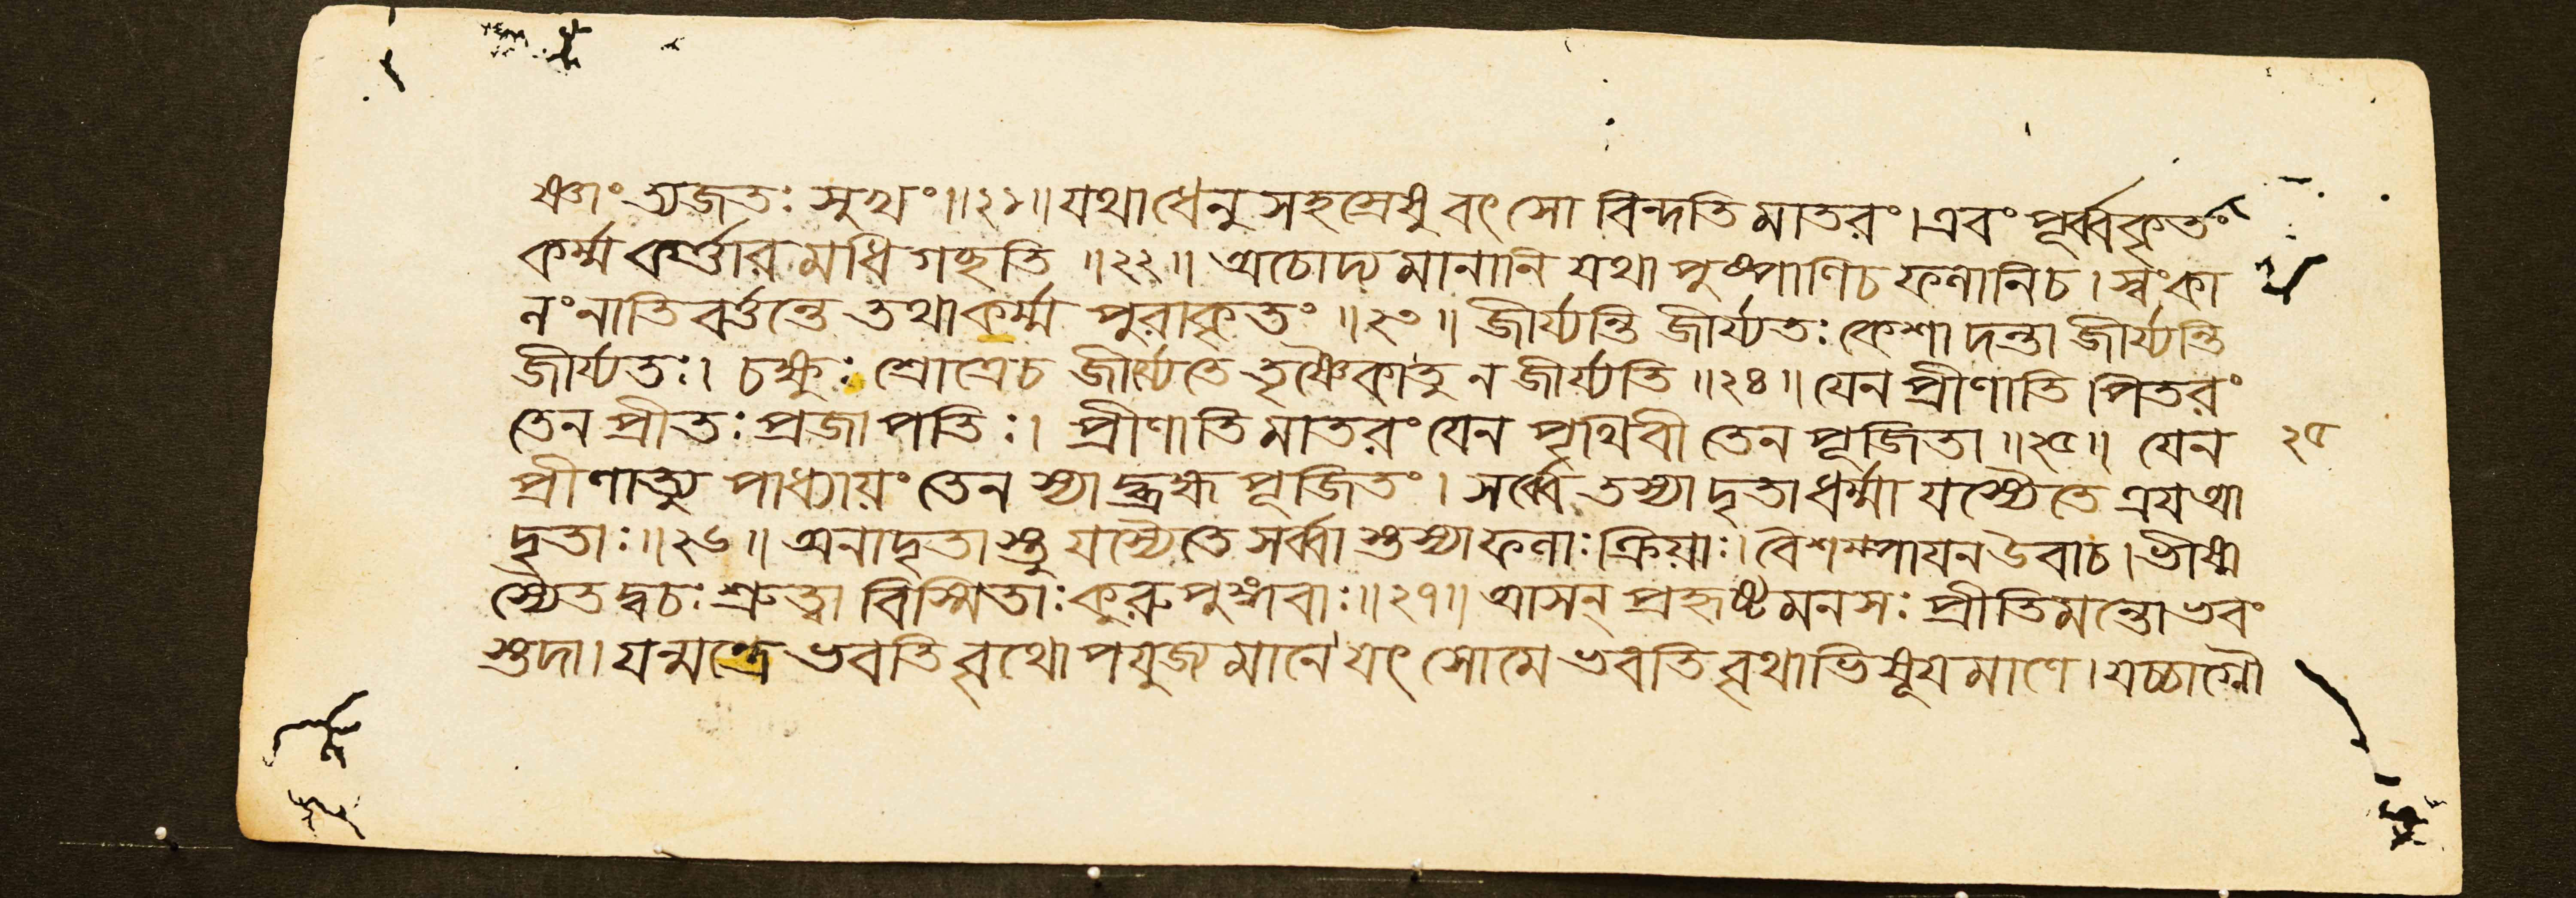 ষ্ণাং ত্যজতঃ সুখং॥২১॥ যথা ধেনু সহস্রেষু বৎসো বিন্দতি মাতরং।এবং পূর্ব্বকৃতং
কর্ম্ম কর্ত্তারমধিগচ্ছতি ॥২২॥ অচোদ্যমানানি যথা পুষ্পাণিচ ফলানিচ। স্বংকা
লং নাতিবর্ত্তন্তে তথা কর্ম্ম পুরাকৃতং ॥২৩॥ জীর্য্যন্তি জীর্য্যতঃ কেশা দন্তা জীর্য্যন্তি
জীর্য্যতঃ। চক্ষুঃ শ্রোত্রেচ জীর্য্যতে তৃষ্ণৈকাতু ন জীর্য্যতি ॥২৪॥ যেন প্রীণাতি পিতরং
তেন প্রীতঃ প্রজাপতিঃ। প্রীণাতি মাতরং যেন পৃথিবী তেন পূজিতা ॥২৫॥ যেন ২৫
প্রীণাত্যুপাধ্যায়ং তেন স্যাদ্ব্রহ্ম পূজিতং। সর্ব্বে তস্যাদৃতা ধর্ম্মা যস্যৈতে ত্রয আ
দৃতাঃ॥২৬॥ অনাদৃতাস্তু যস্যৈতে সর্ব্বাস্তস্যাফলাঃ ক্রিয়াঃ। বৈশম্পাযন উবাচ। ভীষ্ম
স্যৈতদ্বচঃ শ্রুত্বা বিস্মিতাঃ কুরুপুঙ্গবাঃ॥২৭॥ আসন্ প্রহৃষ্টমনসঃ প্রীতিমন্তোভবং
স্তদা। যন্মন্ত্রে ভবতি বৃথোপযুজ্যমানে যৎ সোমে ভবতি বৃথাভিষূযমাণে। যচ্চাগ্নৌ